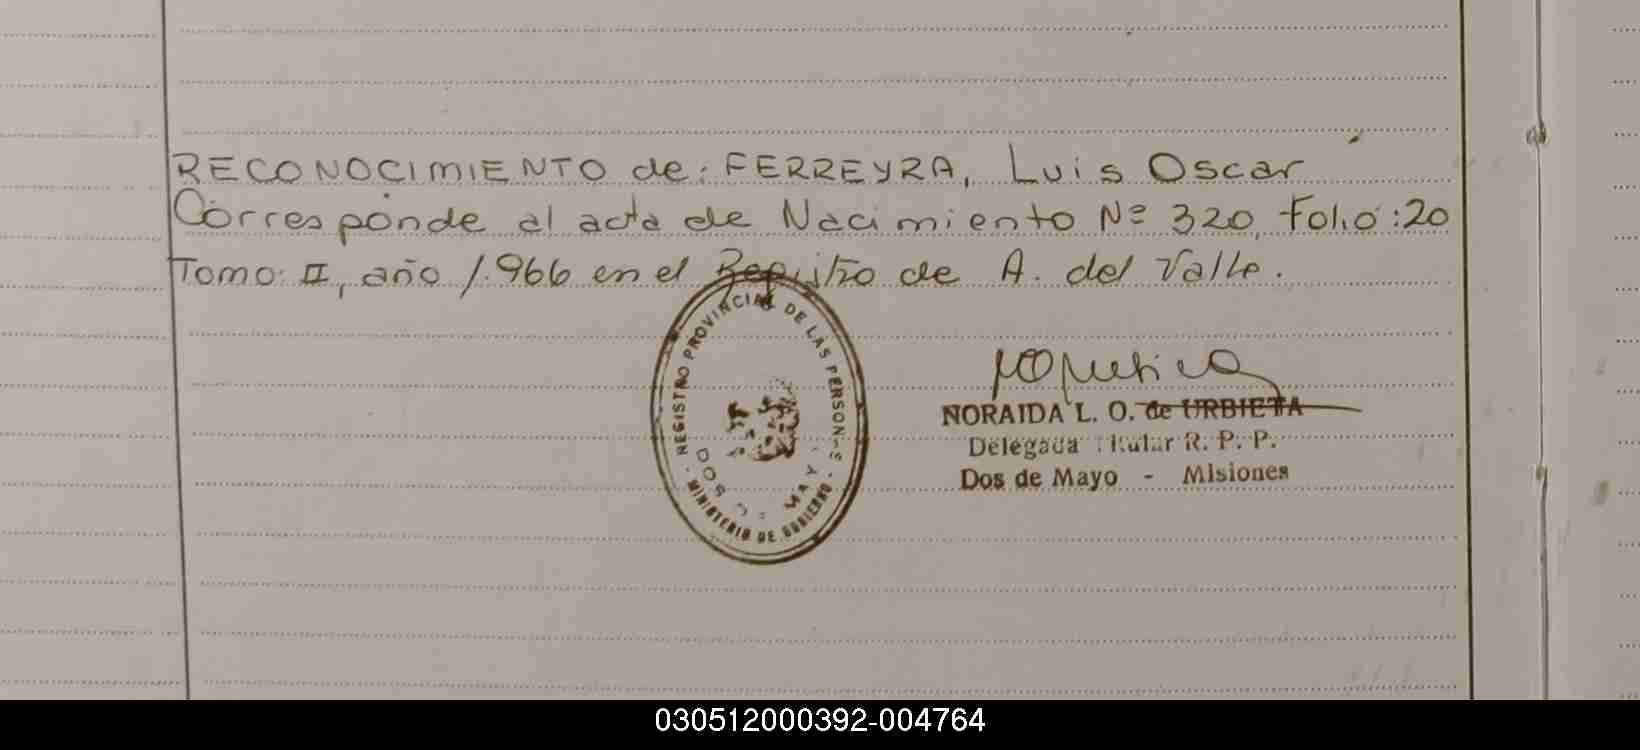 RECONOCIMIENTO de: FERREYRA, Luis Oscar
Corresponde al acta de Nacimiento Nº 320, Folio: 20
Tomo: II, año 1.966 en el Registro de A. del Valle.
REGISTRO PROVINCIAL DE LAS PERSONAS
DOS DE MAYO
MINISTERIO DE GOBIERNO
NORAIDA L. O. de URBIETA
Delegada Titular R. P. P.
Dos de Mayo - Misiones
030512000392-004764